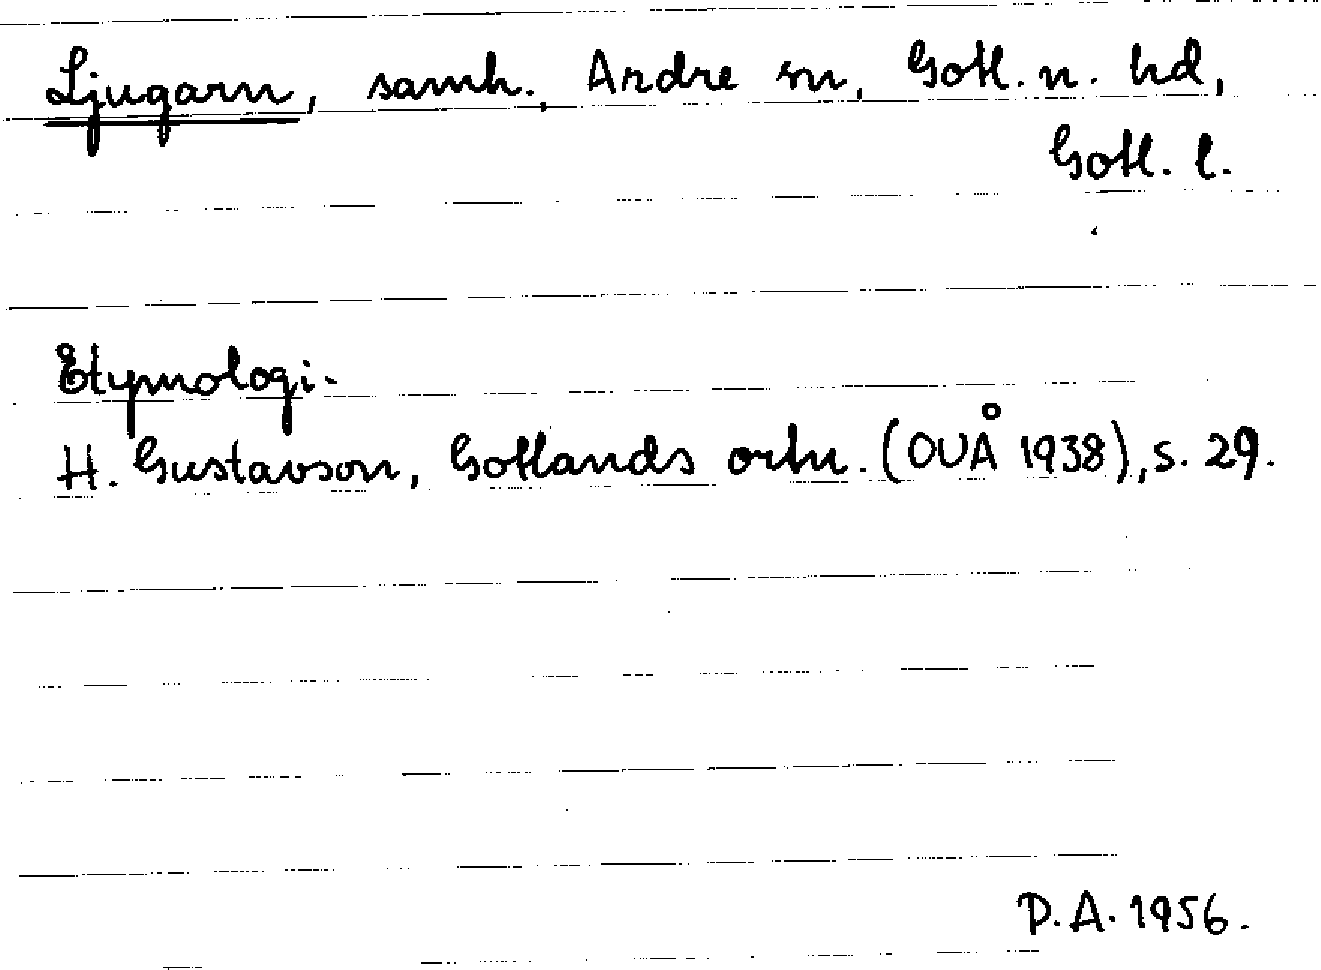 Ljugarn, samh., Ardre sn, Gotl. n. hd,
Gotl. l.
Etymologi.
H. Gustavson, Gotlands ortn. (OUÅ 1938), s. 29.
P.A. 1956.